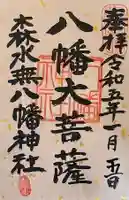 奉拝 令和五年一月五日
八幡大菩薩
森水無八幡神社